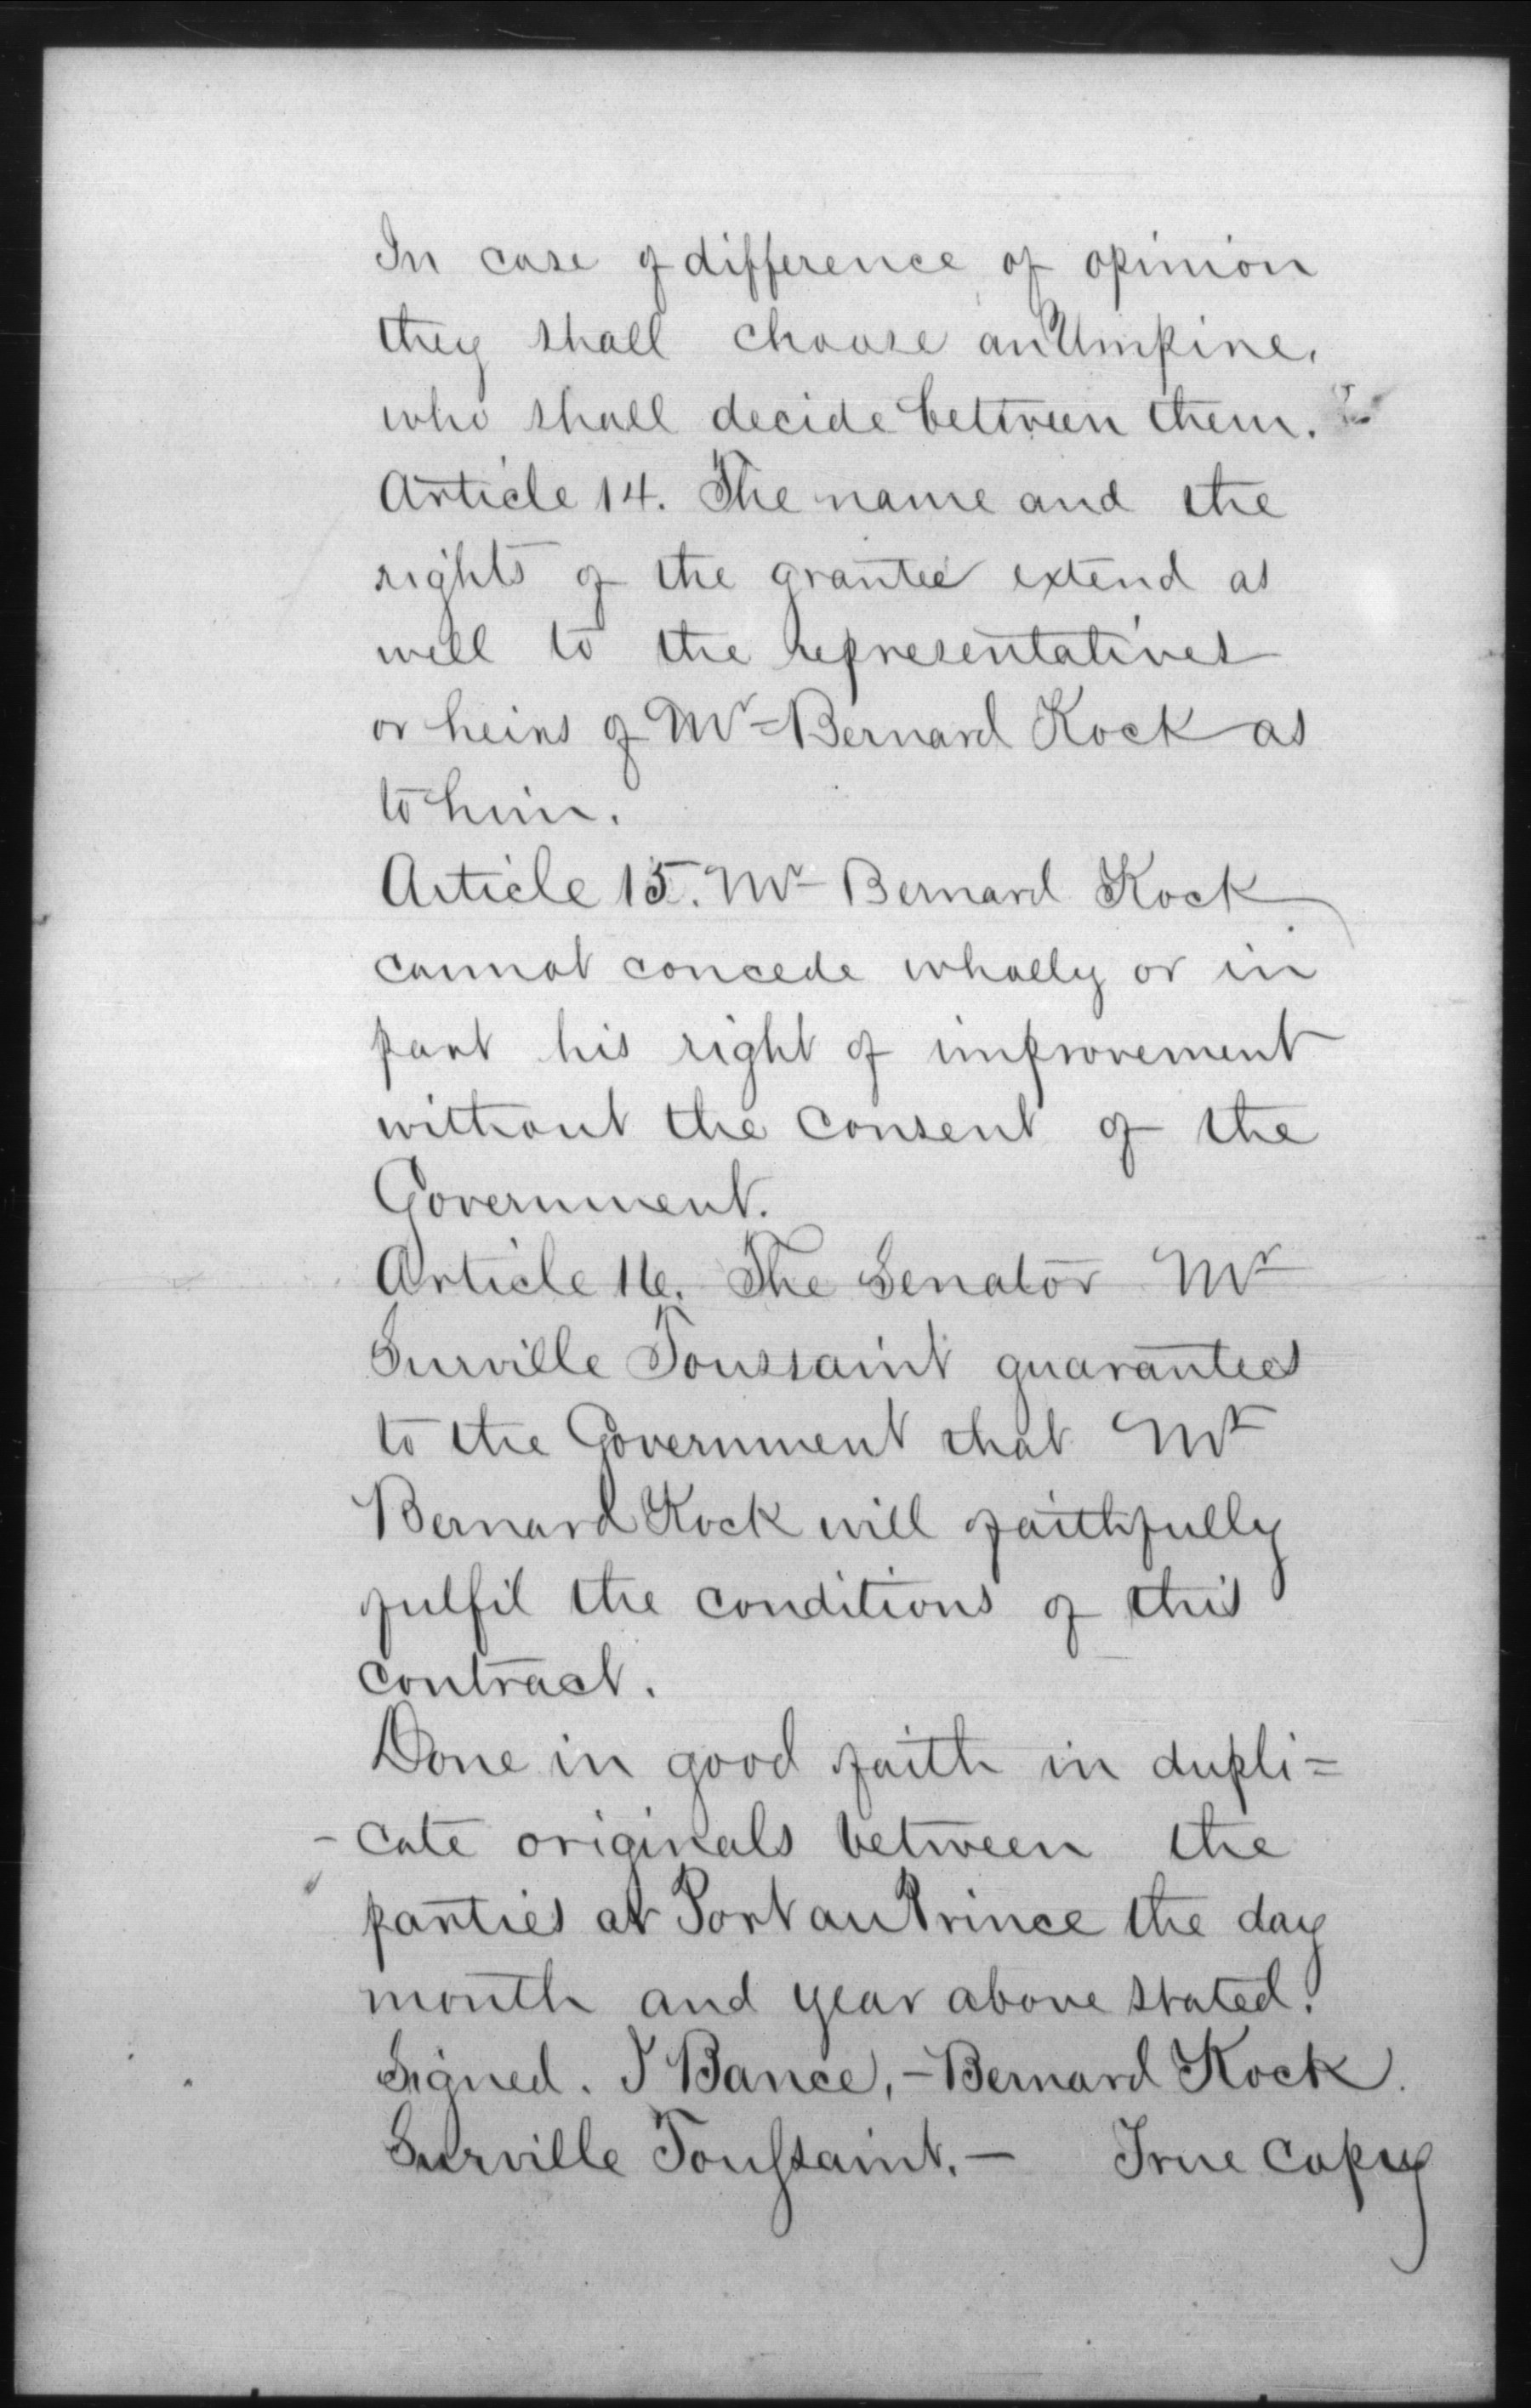 In case of difference of opinion
they shall choose an Umpire,
who shall decide between them.
Article 14. The name and the
rights of the grantee extend as
well to the representatives
or heirs of Mr Bernard Kock as
to him.
Article 15. Mr Bernard Kock
cannot concede wholly or in
part his right of improvement
without the consent of the
Government.
Article 16. The Senator Mr
Surville Toussaint guarantees
to the Government that Mr
Bernard Kock will faithfully
fulfil the conditions of this
contract.
Done in good faith in dupli=
-cate originals between the
parties at Port au Prince the day
month and year above stated.
Signed. J Bance, - Bernard Kock.
Surville Toussaint. - True Copy